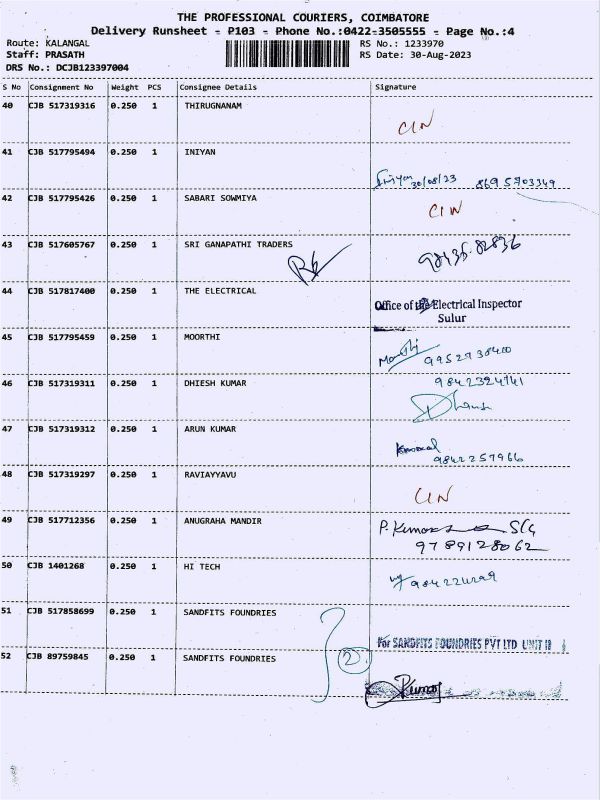 THE PROFESSIONAL COURIERS, COIMBATORE
Delivery Runsheet - P103 - Phone No.:0422-3505555 - Page No.:4
Route: KALANGAL RS No.: 1233970
Staff: PRASATH RS Date: 30-Aug-2023
DRS No.: DCJB123397004
S No Consignment No Weight PCS Consignee Details Signature
40 CJB 517319316 0.250 1 THIRUGNANAM
CIN
41 CJB 517795494 0.250 1 INIYAN
Iniyan 30/08/23 8695703349
42 CJB 517795426 0.250 1 SABARI SOWMIYA
CIN
43 CJB 517605767 0.250 1 SRI GANAPATHI TRADERS
98435-82836
44 CJB 517817400 0.250 1 THE ELECTRICAL
Office of the Electrical Inspector
Sulur
45 CJB 517795459 0.250 1 MOORTHI
Moorthi 9952738400
46 CJB 517319311 0.250 1 DHIESH KUMAR
9842324741
47 CJB 517319312 0.250 1 ARUN KUMAR
9842257966
48 CJB 517319297 0.250 1 RAVIAYYAVU
CIN
49 CJB 517712356 0.250 1 ANUGRAHA MANDIR
9789128062
50 CJB 1401268 0.250 1 HI TECH
51 CJB 517858699 0.250 1 SANDFITS FOUNDRIES
For SANDFITS FOUNDRIES PVT LTD UNIT II
52 CJB 89759845 0.250 1 SANDFITS FOUNDRIES
2
Kumar